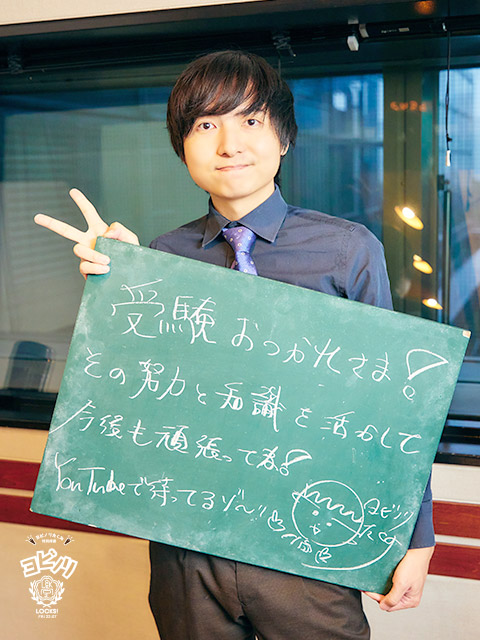 受験おつかれさま!
その努力と知識を活かして
今後も頑張ってね!
YouTubeで待ってるゾ〜!!
ヨビノリ
たくみ
ヨビノリ
LOCKS!